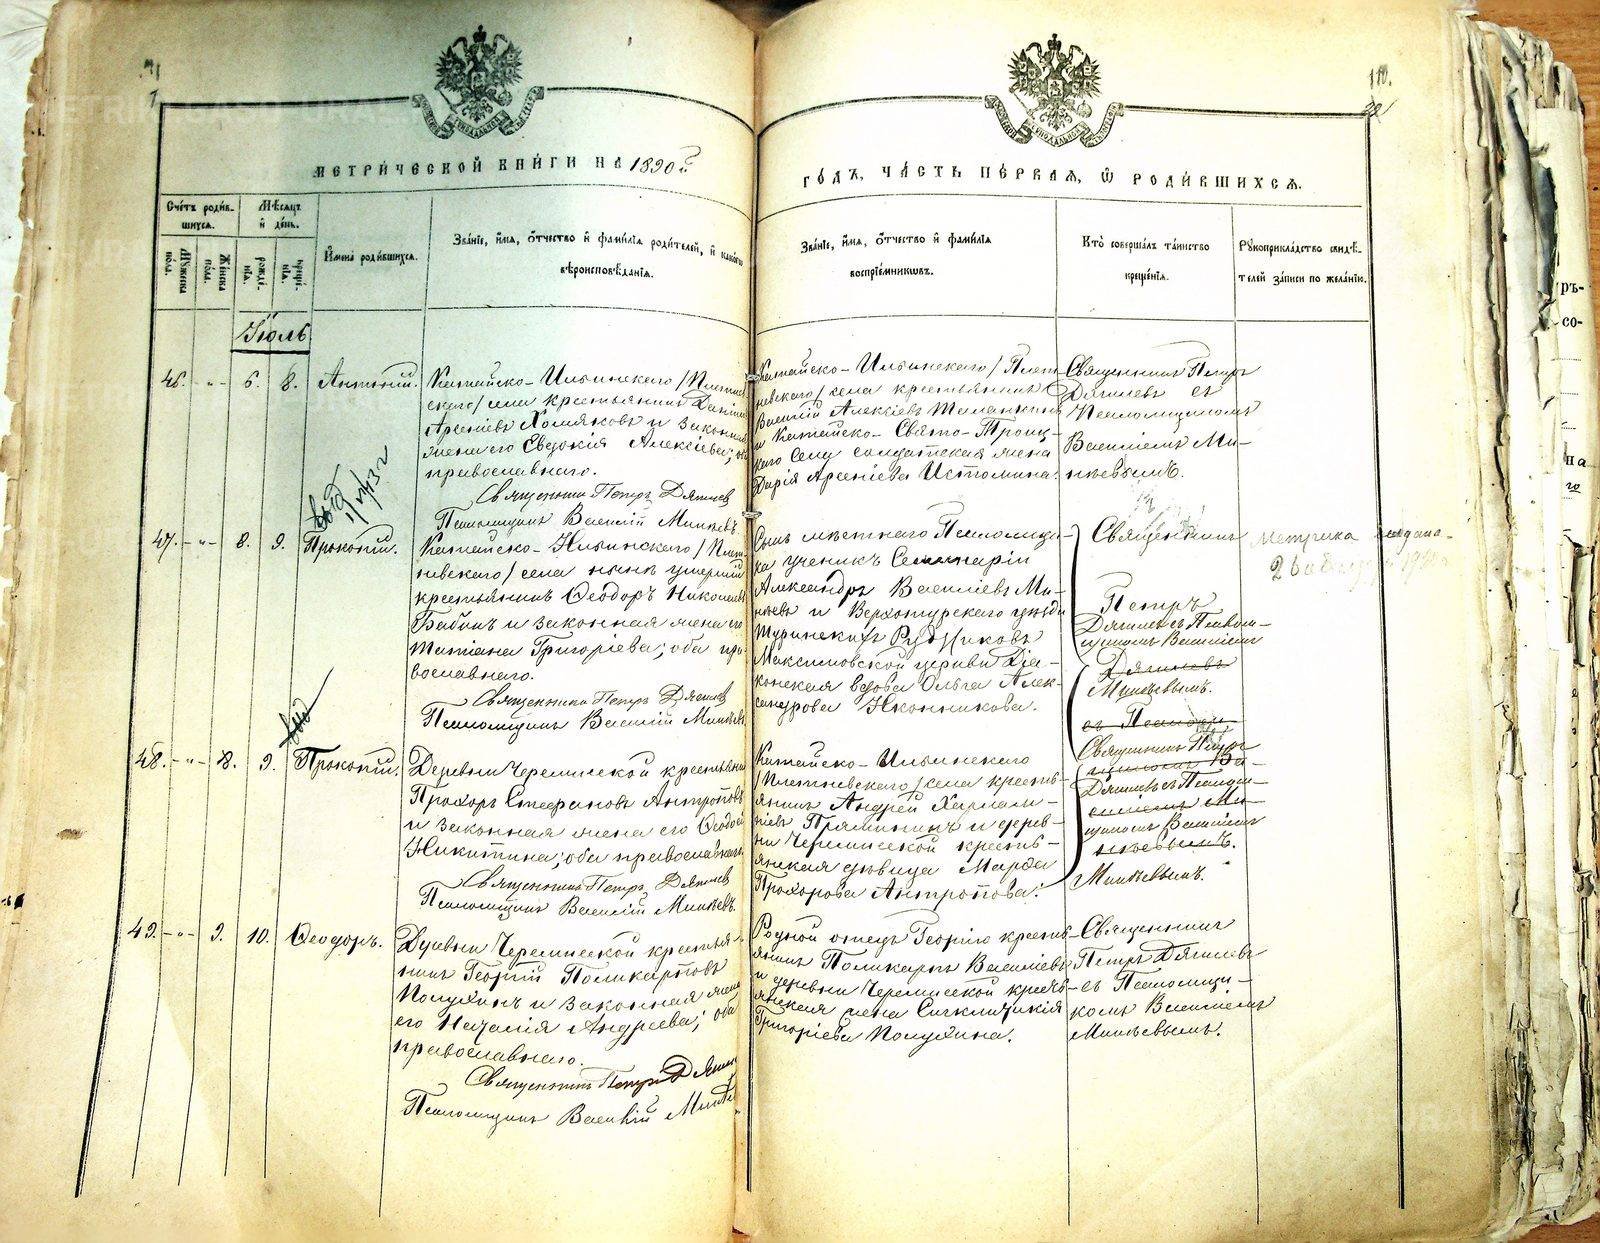 МЕТРИЧЕСКОЙ КНИГИ НА 1890й
ГОДЪ, ЧАСТЬ ПЕРВАЯ, Ѡ РОДИВШИХСЯ.
Счетъ родив-
шихся.
Мѣсяцъ
и день.
Мужеска
пола.
Женска
пола.
рожде-
нія.
креще-
нія.
Имена родившихся.
Званіе, имя, отчество и фамилія родителей, и какого
вѣроисповѣданія.
Званіе, имя, отчество и фамилія
воспріемниковъ.
Кто совершалъ таинство
крещенія.
Рукоприкладство свидѣ-
телей записи по желанію.
Іюль
46. - " - 6. 8. Антоній.
Катайско-Ильинскаго /Плетнев
скаго/ села крестьянинъ Даніилъ
Арсеніевъ Хомяковъ и законная
жена его Евдокія Алексіева; оба
православнаго.
Священникъ Петръ Дягилев
Псаломщикъ Василій Минѣевъ
Катайско-Ильинскаго /Плет-
невскаго/ села крестьянинъ
Василій Алексіевъ
и Катайско-Свято-Троиц-
каго села солдатская жена
Дарія Арсеніева Истомина.
Священникъ Петръ
Дягилевъ съ
Псаломщикомъ
Василіемъ Ми-
нѣевымъ.
47. - " - 8. 9. Прокопій.
Катайско-Ильинскаго /Плет-
невскаго/ села нынѣ умершій
крестьянинъ Ѳеодоръ Николаевъ
Бабинъ и законная жена его
Татіана Григоріева; оба пра-
вославнаго.
Священникъ Петръ Дягилев
Псаломщикъ Василій Минѣевъ
Сынъ мѣстнаго Псаломщи-
ка ученикъ Семинаріи
Александръ Василіевъ Ми-
нѣевъ и Верхотурскаго уѣзда
Туринскихъ Рудниковъ
Максимовской церкви Діа-
конская вдова Ольга Алек-
сандрова Иконникова.
Священникъ
Петръ
Дягилевъ съ Псалом-
щикомъ Василіемъ
Дягилевъ
Минѣевымъ.
Метрика выдана
48. - " - 8. 9. Прокопій.
Деревни Черемисской крестьянинъ
Прохоръ Стефановъ Антроповъ
и законная жена его Ѳеодосія
Никитина; оба православнаго.
Священникъ Петръ Дягилев
Псаломщикъ Василій Минѣевъ.
Катайско-Ильинскаго
/Плетневскаго/ села кресть-
янинъ Андрей Харлам-
піевъ Пряминъ и дерев-
ни Черемисской кресть-
янская дѣвица Марѳа
Прохорова Антропова.
съ Псалом
Священникъ Петръ
щикомъ Ва-
Дягилевъ съ Псалом-
силіемъ Ми-
щикомъ Василіемъ
нѣевымъ.
Минѣевымъ.
49. - " - 9. 10. Ѳеодоръ.
Деревни Черемисской крестья-
нинъ Георгій Поликарповъ
Полухинъ и законная жена
его Наталія Андреева; оба
православнаго.
Священникъ Петръ Дягилев
Псаломщикъ Василій Минѣев
Родной отецъ Георгію кресть-
янинъ Поликарпъ Василіевъ
и деревни Черемисской кресть-
янская жена Синклитикія
Григоріева Полухина.
Священникъ
Петръ Дягилевъ
съ Псаломщи-
комъ Василіемъ
Минѣевымъ.